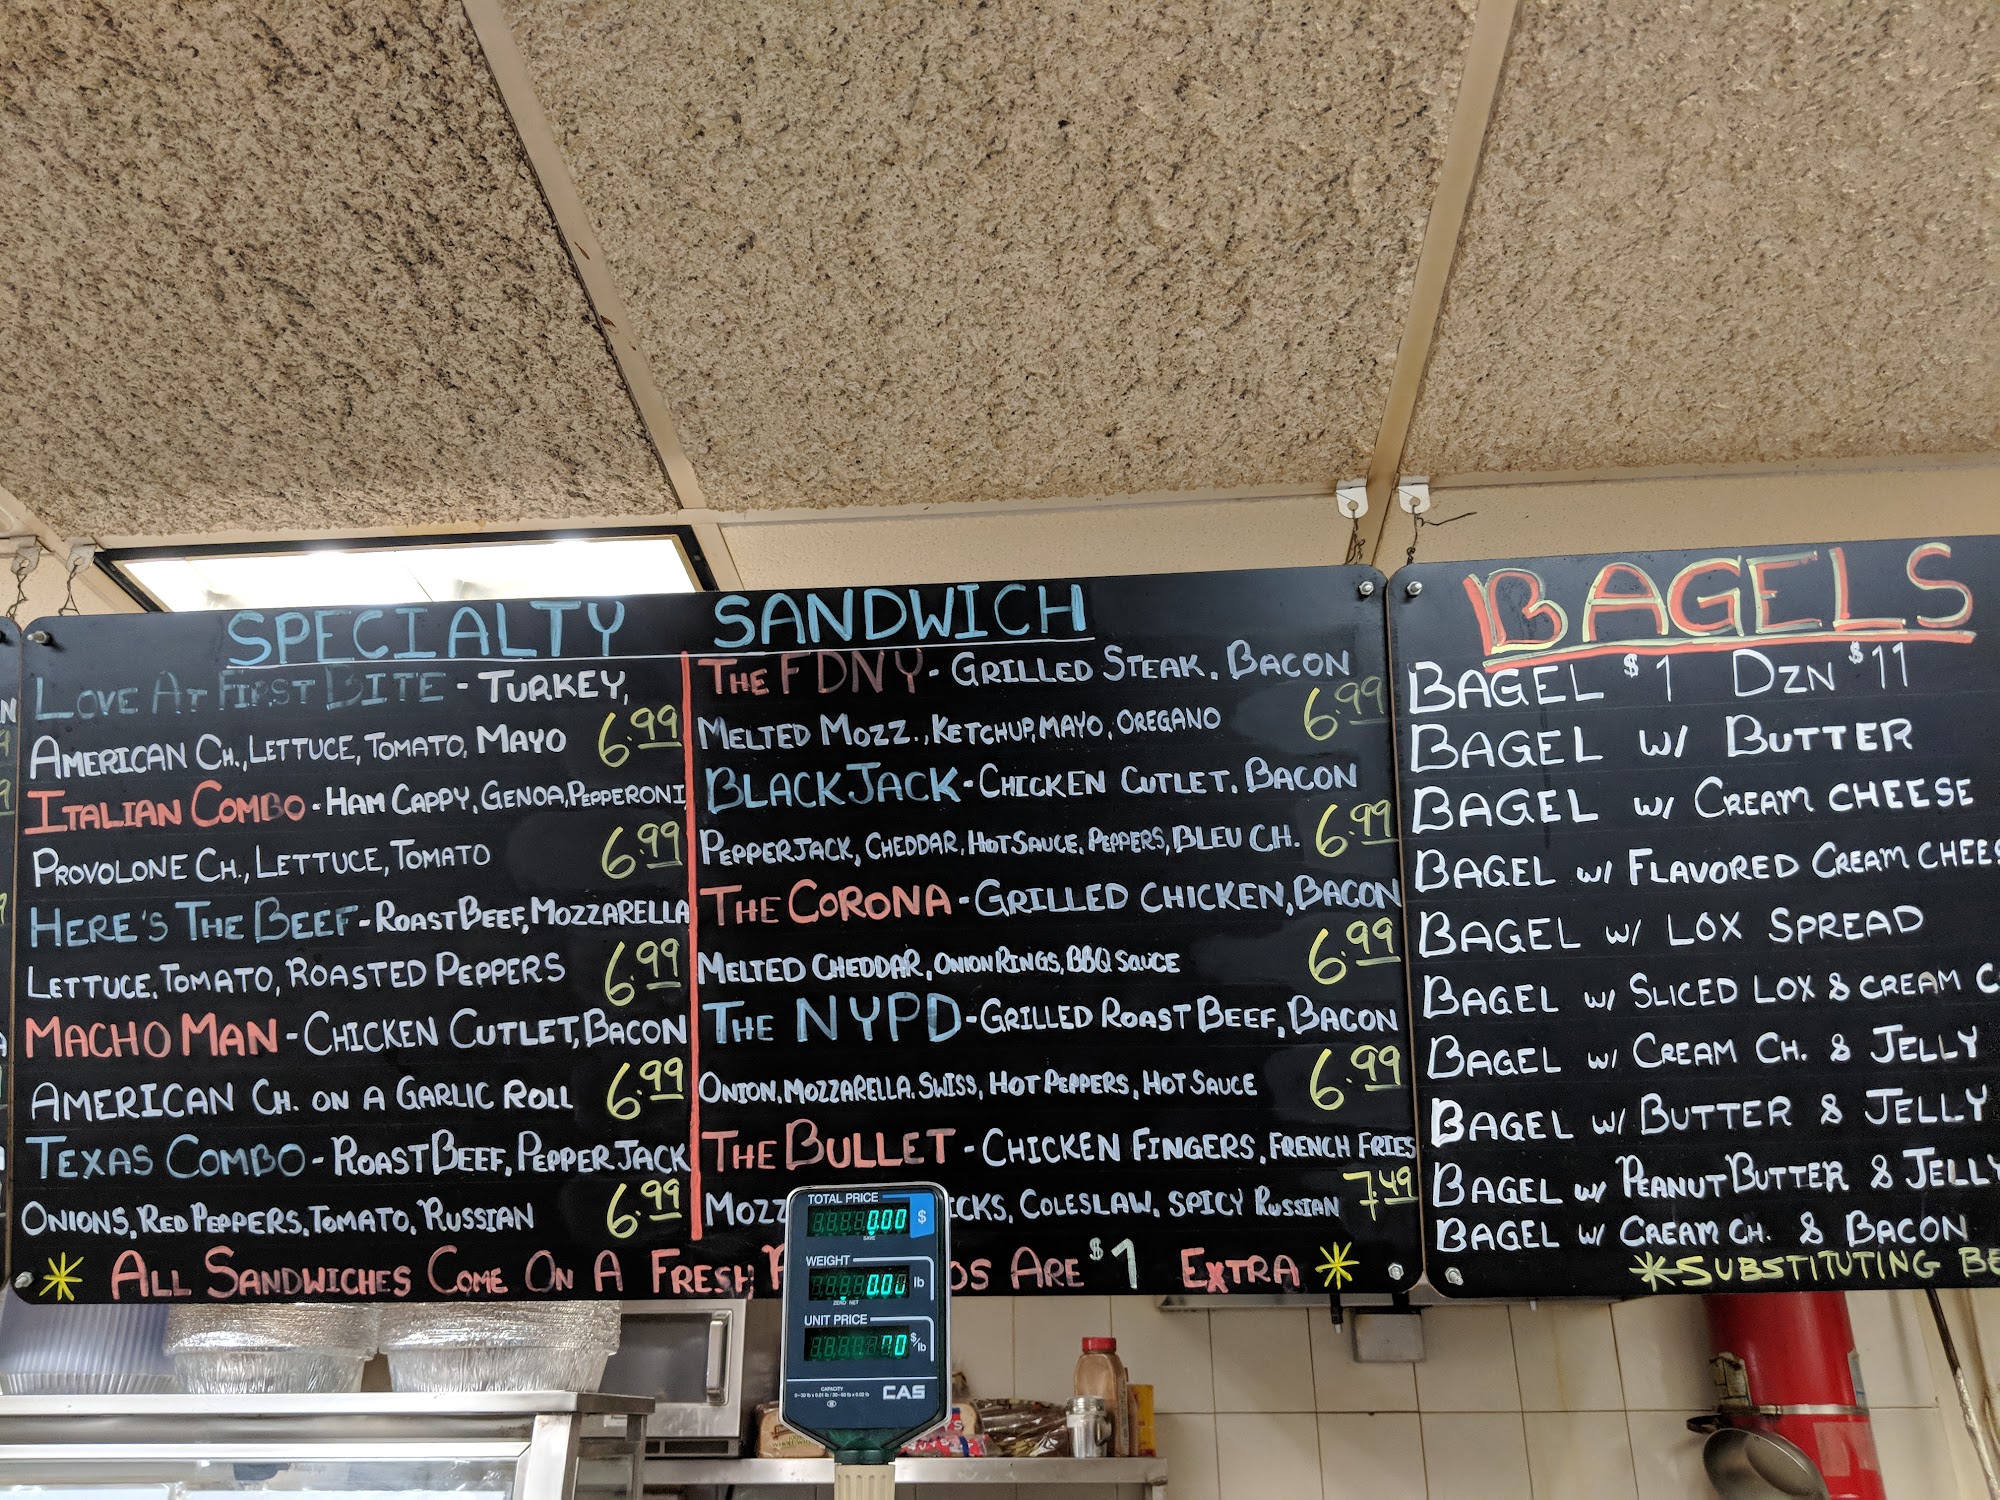 SPECIALTY SANDWICH
LOVE AT FIRST BITE - TURKEY,
AMERICAN CH., LETTUCE, TOMATO, MAYO 6.99
ITALIAN COMBO - HAM CAPPY, GENOA, PEPPERONI
PROVOLONE CH., LETTUCE, TOMATO 6.99
HERE'S THE BEEF - ROAST BEEF, MOZZARELLA
LETTUCE, TOMATO, ROASTED PEPPERS 6.99
MACHO MAN - CHICKEN CUTLET, BACON
AMERICAN CH. ON A GARLIC ROLL 6.99
TEXAS COMBO - ROAST BEEF, PEPPER JACK
ONIONS, RED PEPPERS, TOMATO, RUSSIAN 6.99
THE FDNY - GRILLED STEAK, BACON
MELTED MOZZ., KETCHUP, MAYO, OREGANO 6.99
BLACK JACK - CHICKEN CUTLET, BACON
PEPPERJACK, CHEDDAR, HOT SAUCE, PEPPERS, BLEU CH. 6.99
THE CORONA - GRILLED CHICKEN, BACON
MELTED CHEDDAR, ONION RINGS, BBQ SAUCE 6.99
THE NYPD - GRILLED ROAST BEEF, BACON
ONION, MOZZARELLA, SWISS, HOT PEPPERS, HOT SAUCE 6.99
THE BULLET - CHICKEN FINGERS, FRENCH FRIES
MOZZ ICKS, COLESLAW, SPICY RUSSIAN 7.49
* ALL SANDWICHES COME ON A FRESH OS ARE $1 EXTRA *
BAGELS
BAGEL $1 DZN $11
BAGEL W/ BUTTER
BAGEL W/ CREAM CHEESE
BAGEL W/ FLAVORED CREAM CHEES
BAGEL W/ LOX SPREAD
BAGEL W/ SLICED LOX & CREAM C
BAGEL W/ CREAM CH. & JELLY
BAGEL W/ BUTTER & JELLY
BAGEL W/ PEANUT BUTTER & JELLY
BAGEL W/ CREAM CH. & BACON
*SUBSTITUTING BE
TOTAL PRICE
0.00 $
WEIGHT
0.00 lb
ZERO NET
UNIT PRICE
$/lb
CAPACITY
CAS